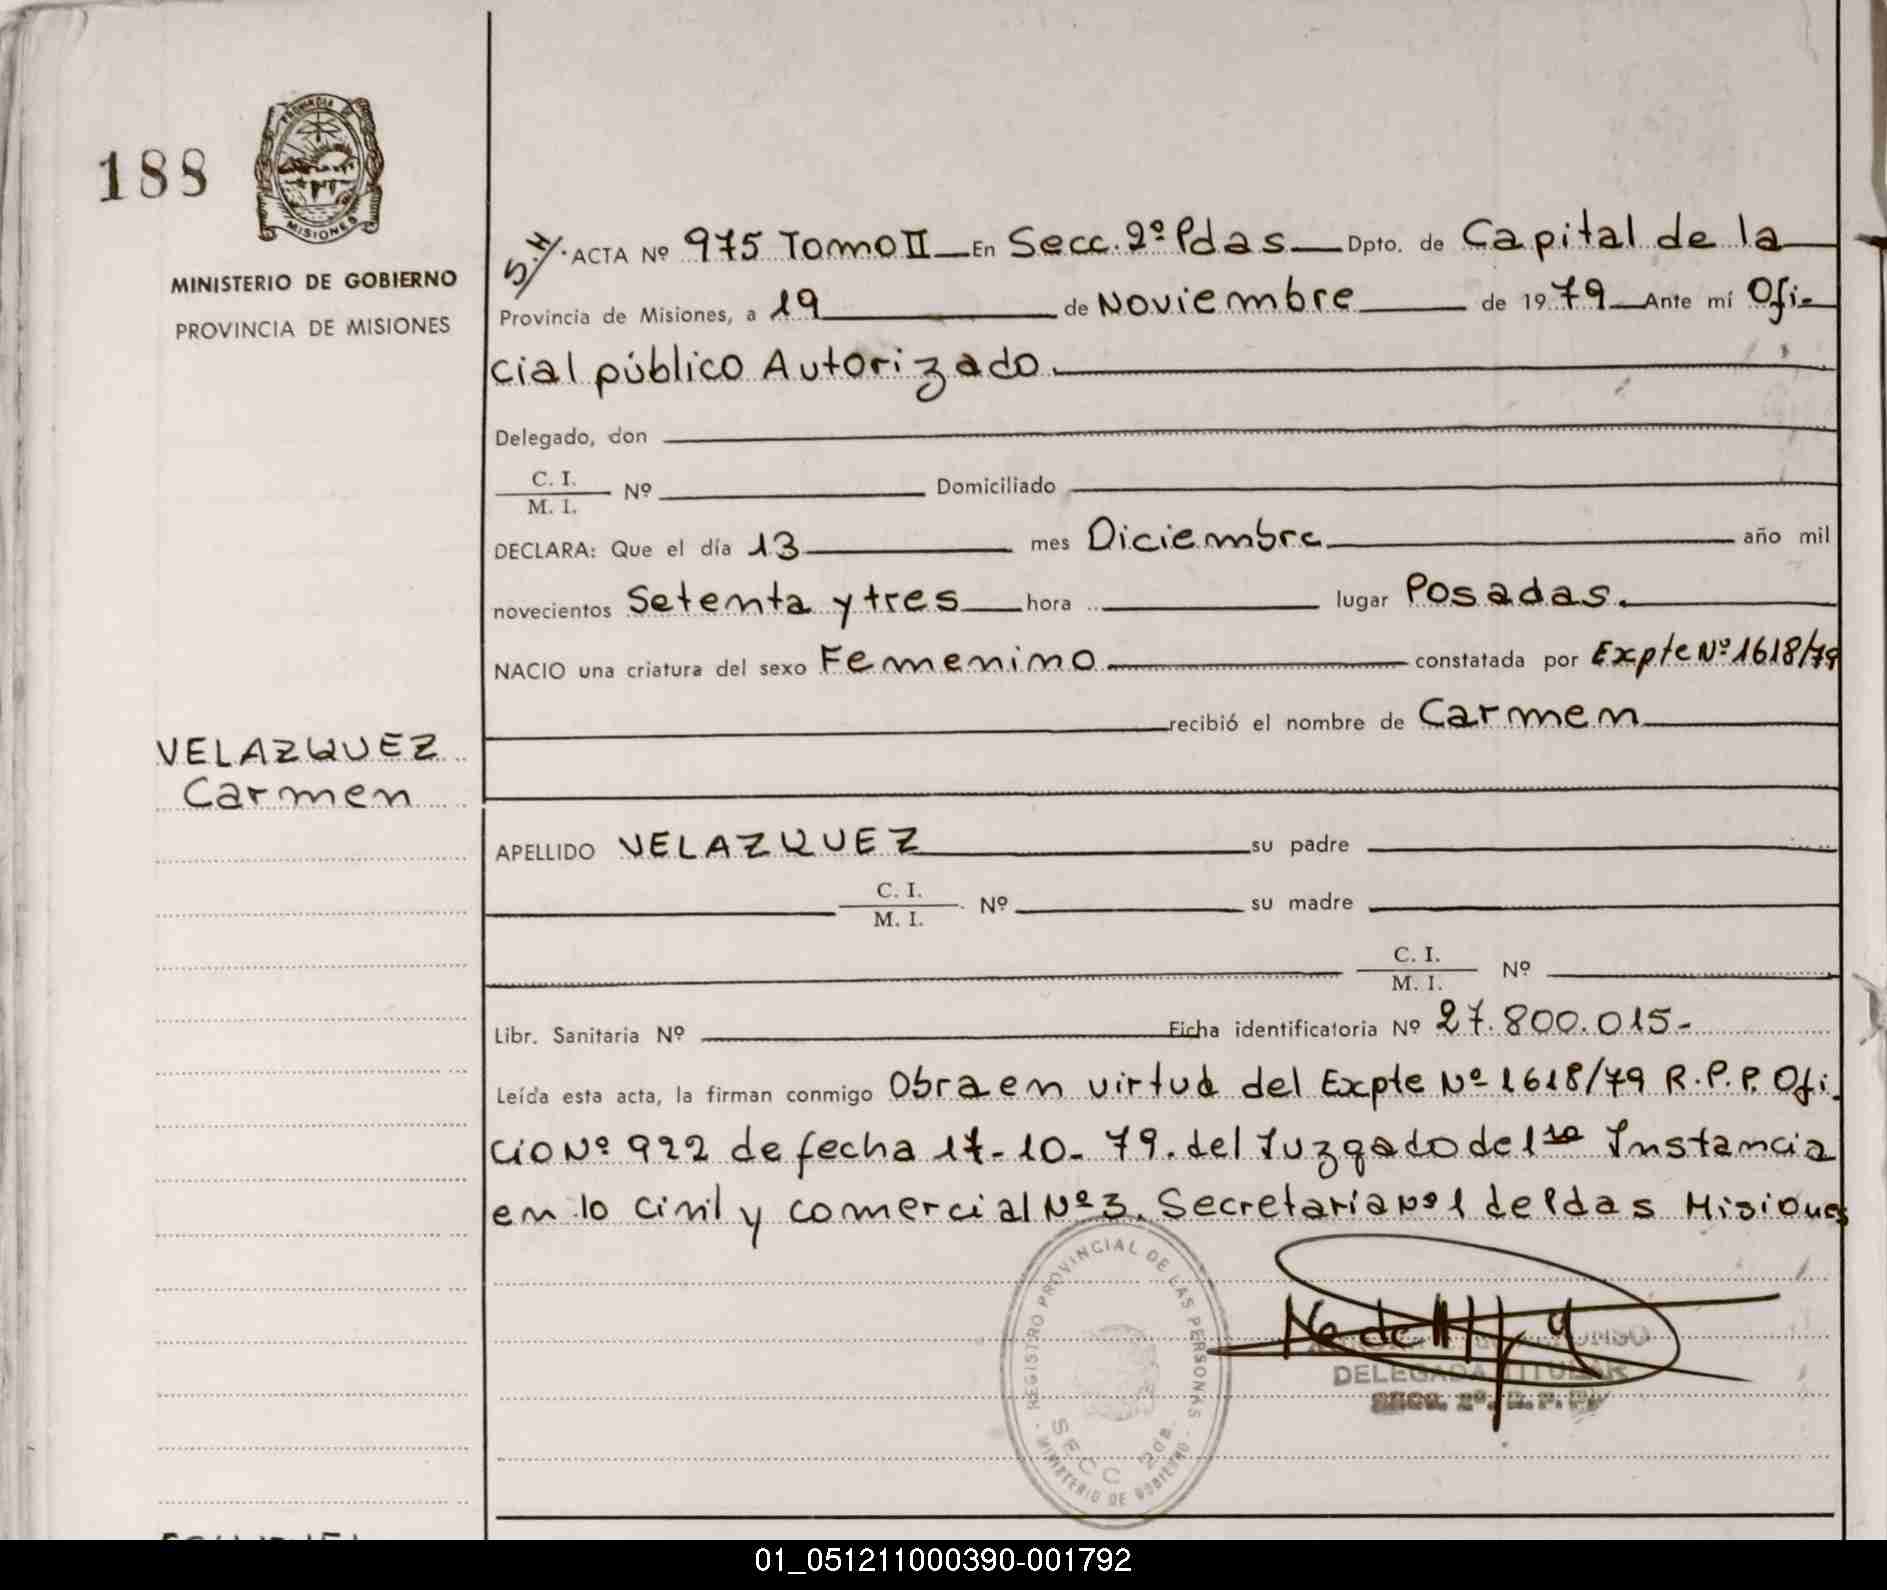 188
PROVINCIA DE
MISIONES
MINISTERIO DE GOBIERNO
PROVINCIA DE MISIONES
S.H/. ACTA Nº 975 Tomo II En Secc. 2º Pdas Dpto. de Capital de la
Provincia de Misiones, a 19 de Noviembre de 1979 Ante mí Ofi-
cial público Autorizado.
Delegado, don
C. I.
M. I. Nº Domiciliado
DECLARA: Que el día 13 mes Diciembre año mil
novecientos Setenta y tres hora lugar Posadas.
NACIO una criatura del sexo Femenino constatada por Expte Nº 1618/79
recibió el nombre de Carmen
VELAZQUEZ
Carmen
APELLIDO VELAZQUEZ su padre
C. I.
M. I. Nº su madre
C. I.
M. I. Nº
Libr. Sanitaria Nº Ficha identificatoria Nº 27.800.015-
Leída esta acta, la firman conmigo Obra en virtud del Expte Nº 1618/79 R.P.P. Ofi-
cio Nº 922 de fecha 17-10-79. del Juzgado de 1ra Instancia
en lo civil y comercial Nº 3. Secretaría Nº 1 de Pdas Misiones
REGISTRO PROVINCIAL DE LAS PERSONAS
SECC 2DA.
MINISTERIO DE GOBIERNO
DELEGADA TITULAR
SECC. 2º. R. P. P.
01_051211000390-001792